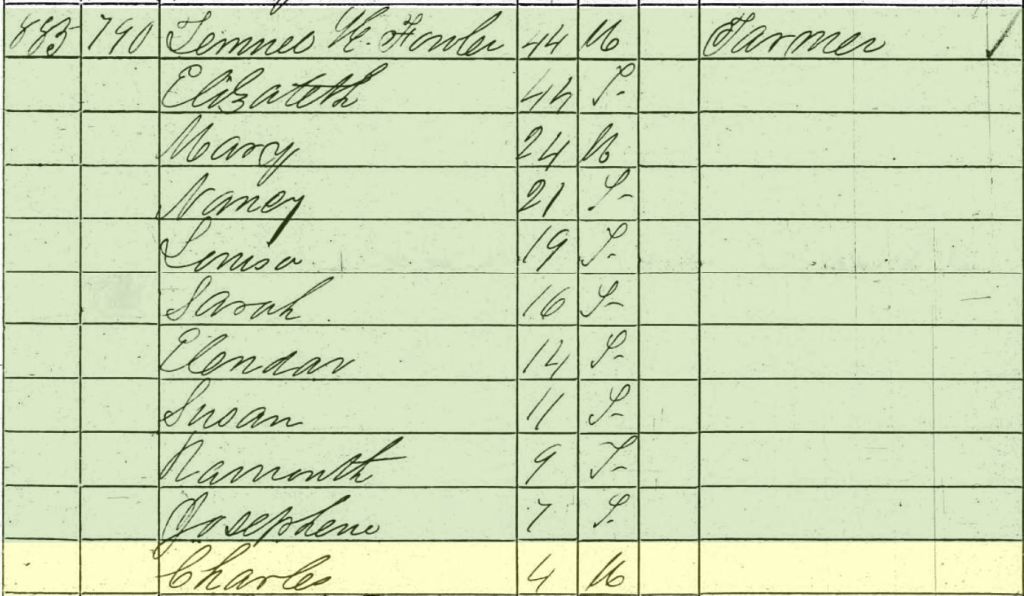 885 790 Temnes H. Fowler 44 M Farmer ✓
Elizabeth 44 F
Mary 24 M
Nancy 21 F
Louisa 19 F
Sarah 16 F
Elendar 14 F
Susan 11 F
9 F
Josephene 7 F
Charles 4 M